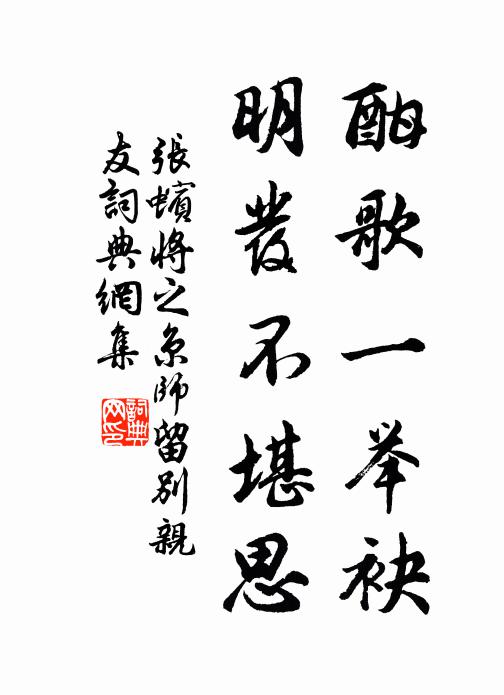 酣歌一举袂
明發不堪思
張蠙將之京師留別親
友詞典網集
詞典网印